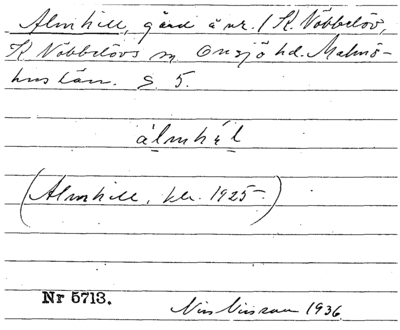 Almhill, gård å nr. 1 K. Nöbbelöv,
K. Nöbbelövs sn Onsjö hd. Malmö-
hus län. S 5.
älmhil
(Almhill, kk. 1925)
Nr 5713.
Nils Nilsson 1936